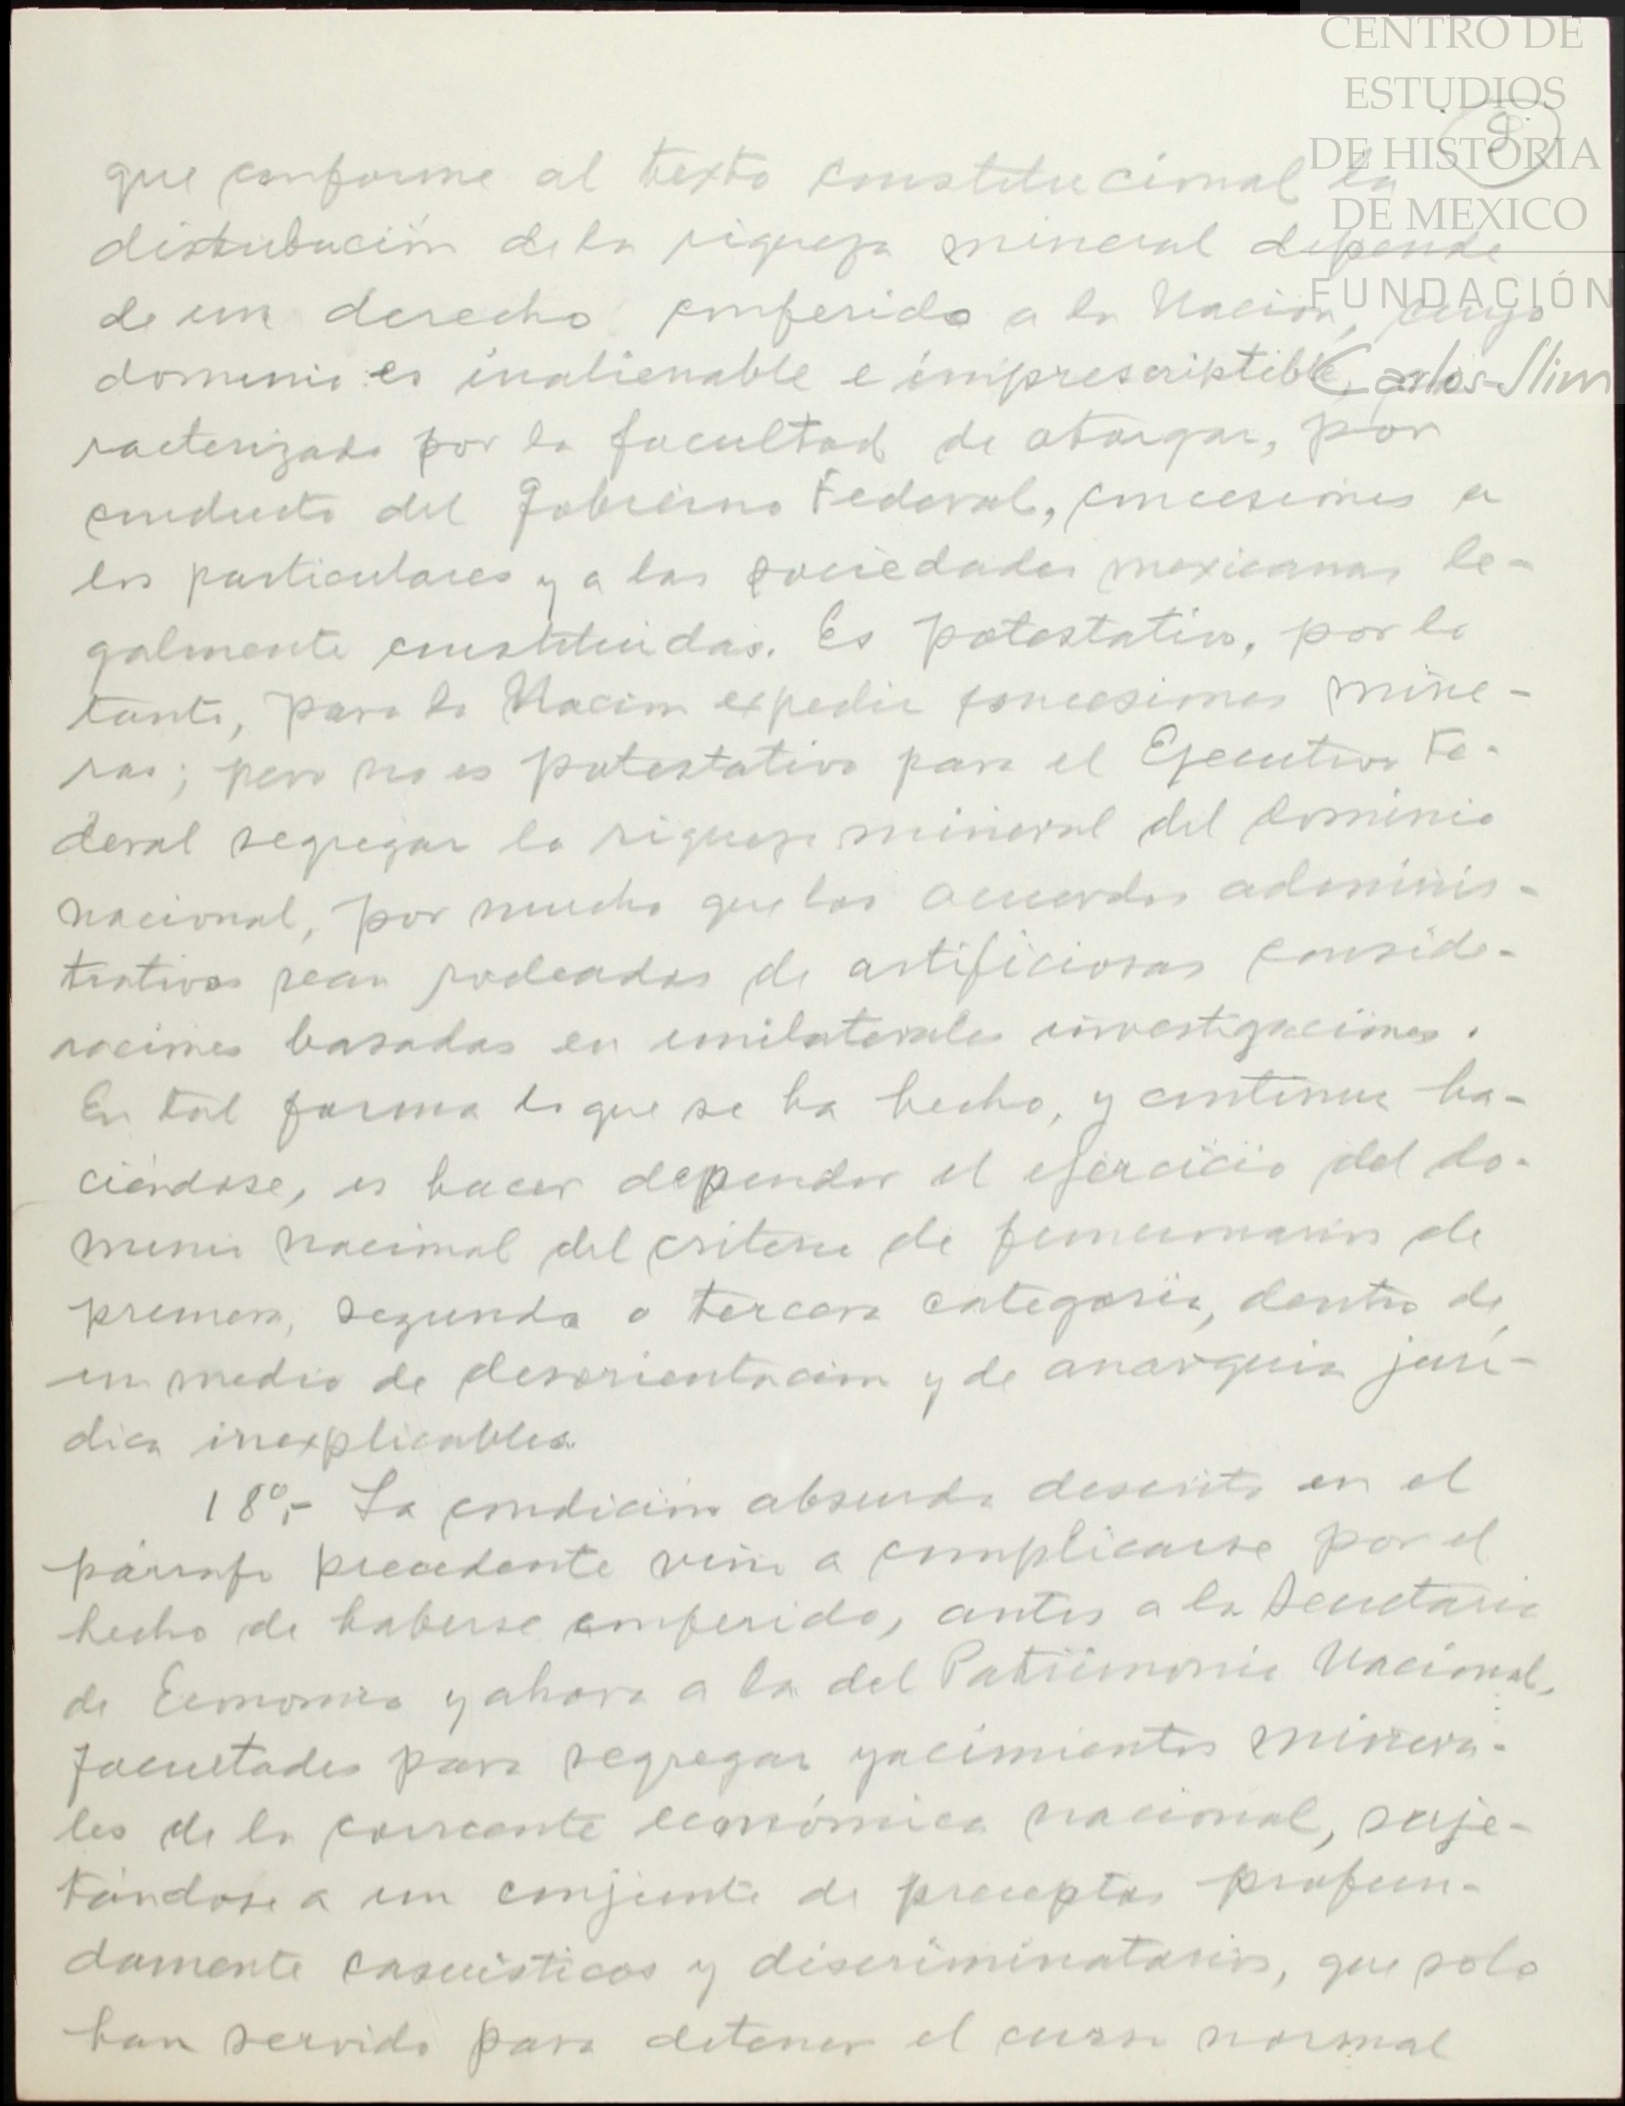 CENTRO DE
ESTUDIOS
DE HISTORIA
DE MEXICO
FUNDACIÓN
Carlos Slim
que conforme al texto constitucional la
distribución de la riqueza mineral depende
de un derecho conferido a la Nación, cuyo
dominio es inalienable e imprescriptible, ca-
racterizado por la facultad de otorgar, por
conducto del Gobierno Federal, concesiones a
los particulares y a las sociedades mexicanas le-
galmente constituidas. Es potestativo, por lo
tanto, para la Nacion expedir concesiones mine-
ras; pero no es potestativo para el Ejecutivo Fe-
deral segregar la riqueza mineral del dominio
nacional, por mucho que los acuerdos adminis-
trativos sean rodeados de artificiosas conside-
raciones basadas en unilaterales investigaciones.
En tal forma lo que se ha hecho, y continua ha-
ciéndose, es hacer depender el ejercicio del do-
minio nacional del criterio de funcionarios de
primera, segunda o tercera categoría, dentro de
un medio de desorientacion y de anarquia juri-
dica inexplicables.
18º,- La condición absurda descrita en el
párrafo precedente vino a complicarse por el
hecho de haberse conferido, antes a la Secretaria
de Economia y ahora a la del Patrimonio Nacional,
facultades para segregar yacimientos minera-
les de la corriente económica nacional, suje-
tándose a un conjunto de preceptos profun-
damente casuísticos y discriminatorios, que solo
han servido para detener el curso normal